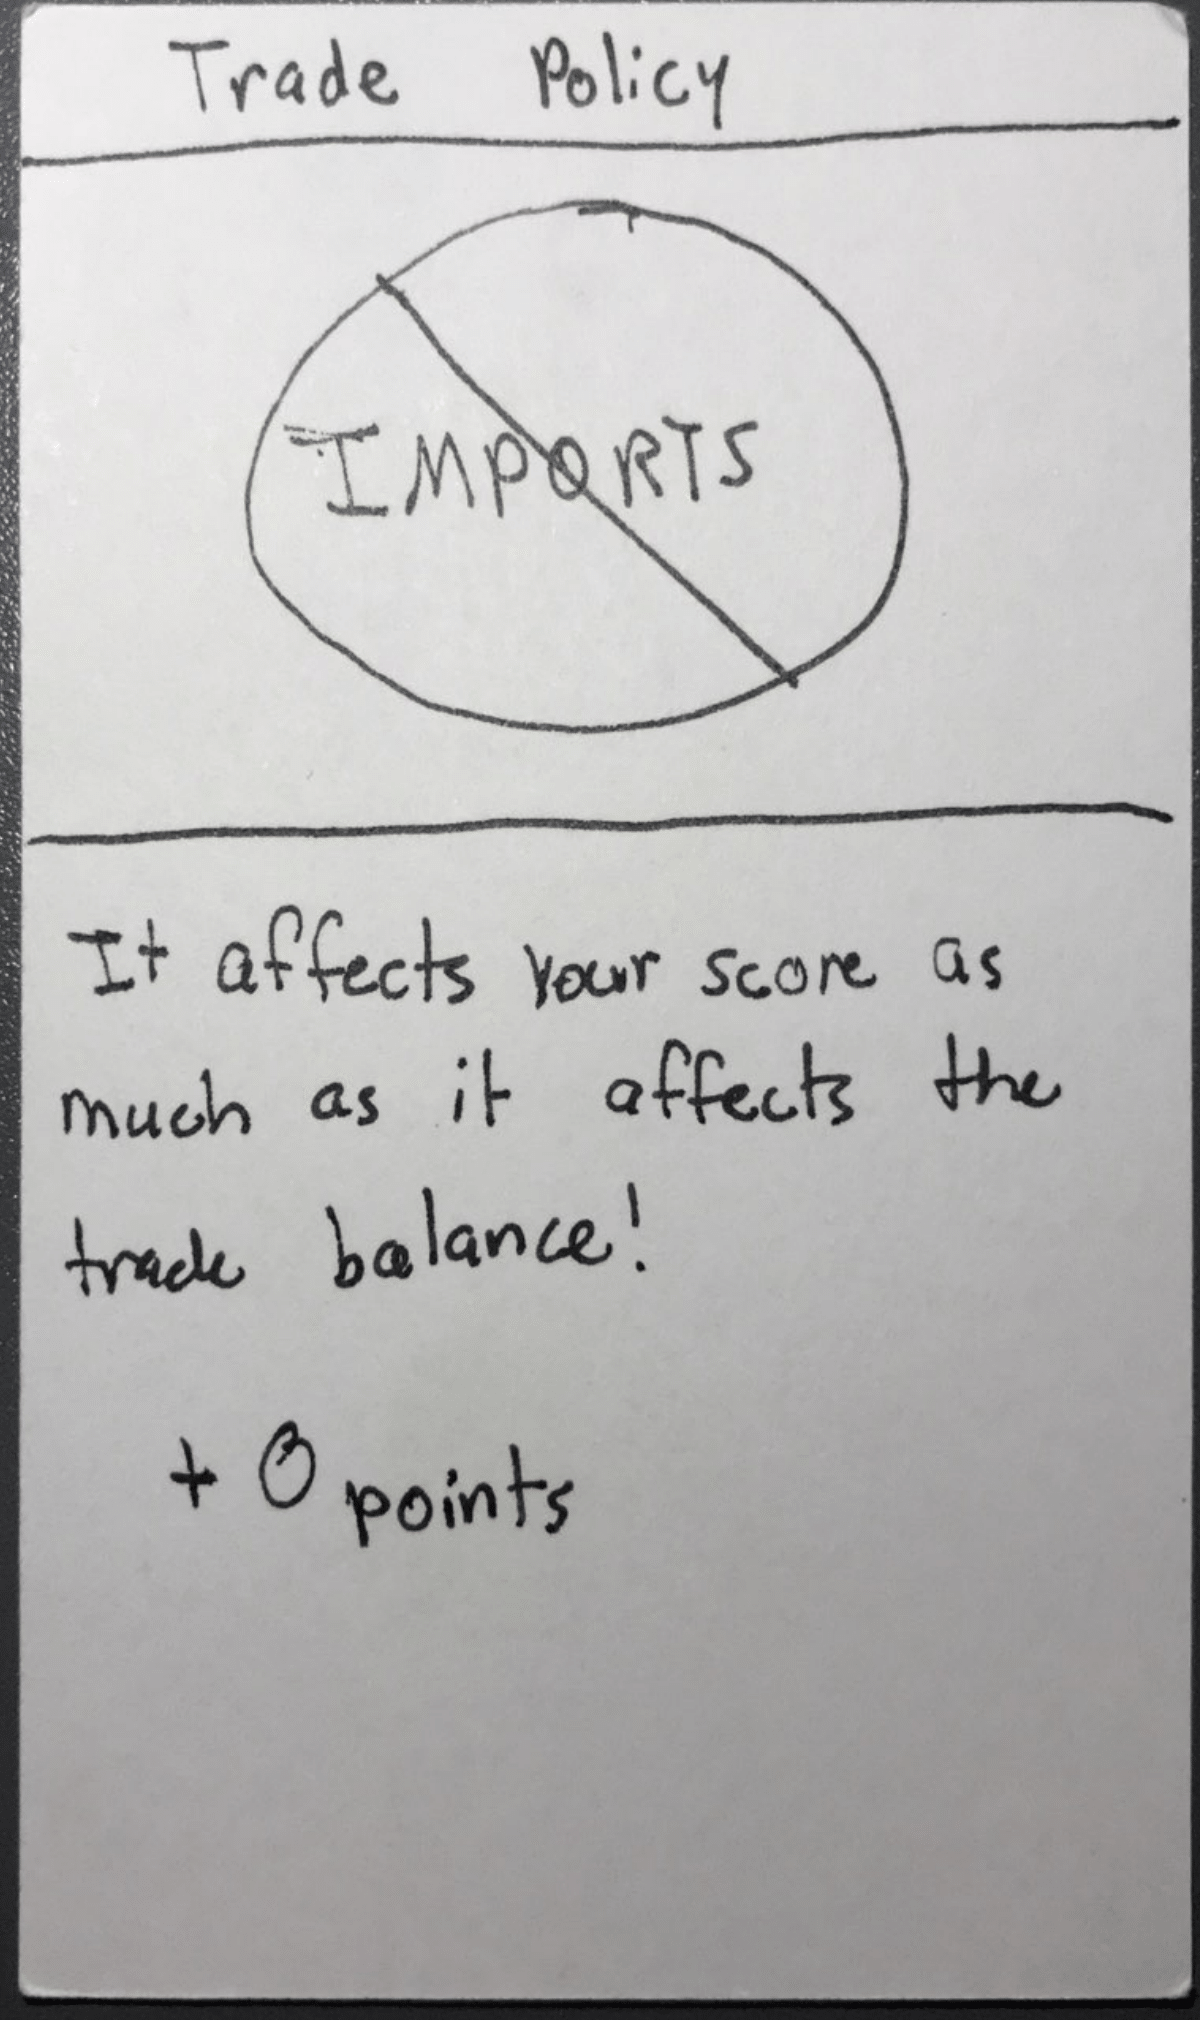 Trade Policy
IMPORTS
It affects your score as
much as it affects the
trade balance!
+ 0 points